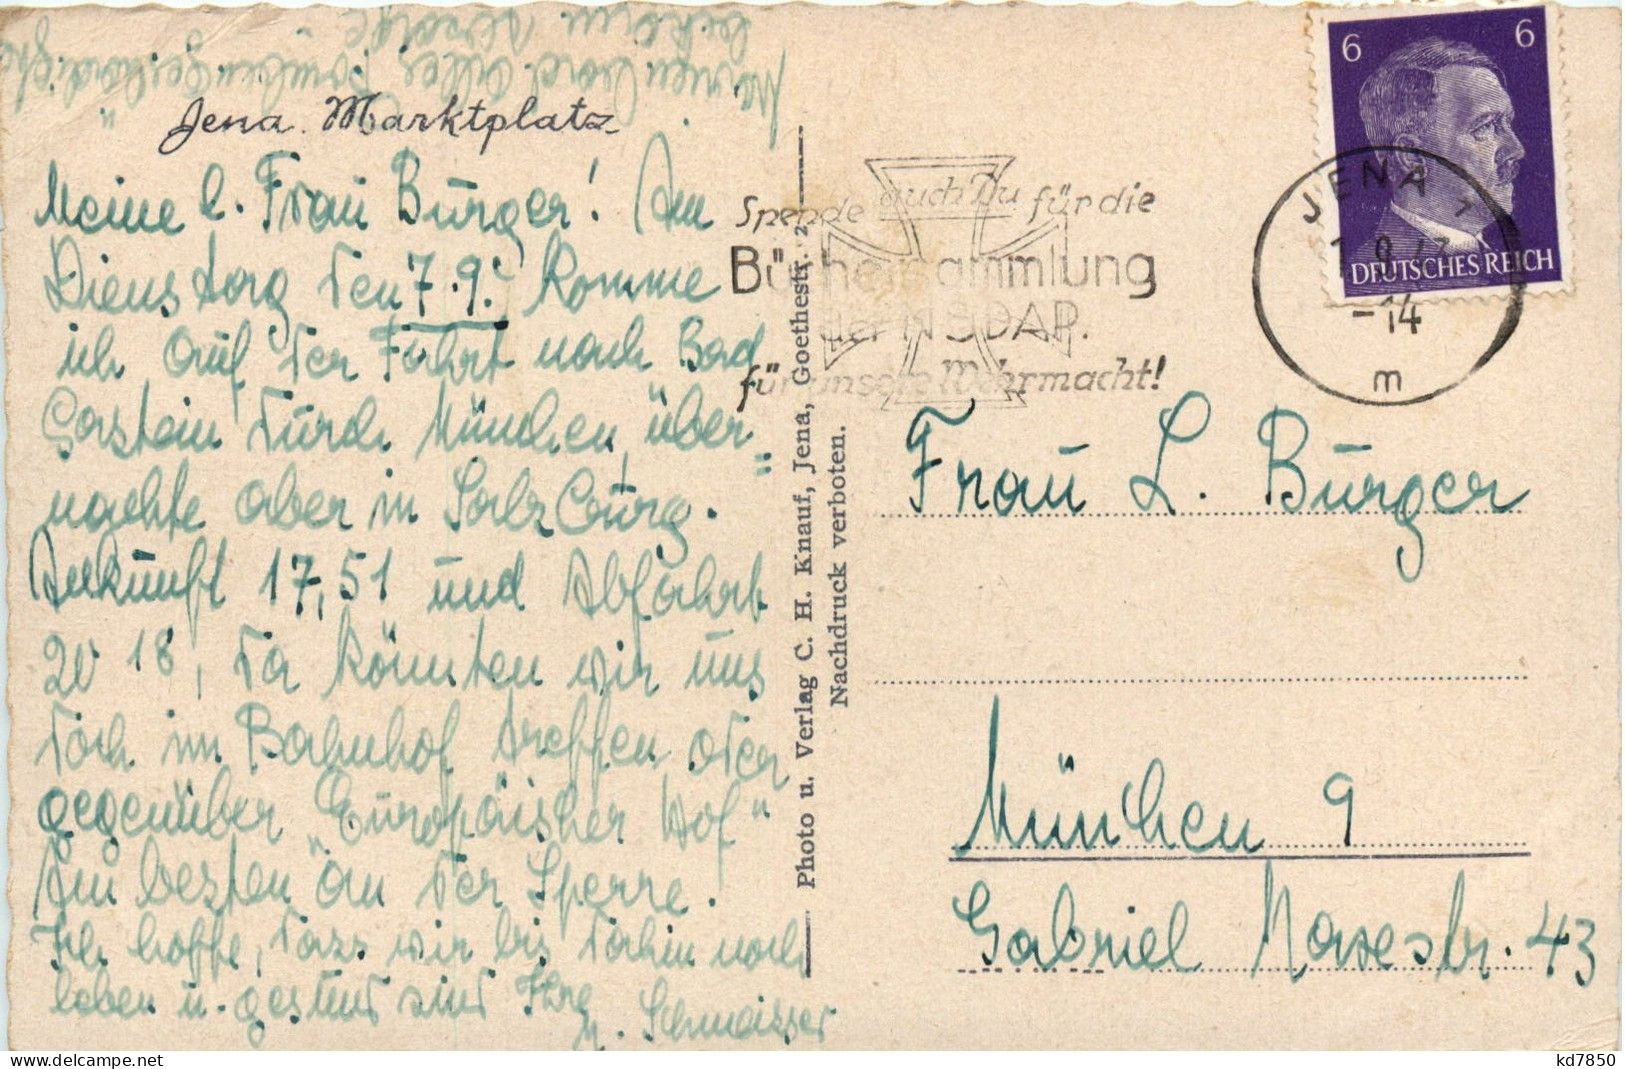 Jena. Marktplatz
Meine l. Frau Bürger! Am
Dienstag den 7.9. komme
ich auf der Fahrt nach Bad
Gastein durch München, über=
nachte aber in Salzburg.
Ankunft 17,51 und Abfahrt
20 18, da könnten wir uns
doch im Bahnhof treffen oder
gegenüber "Europäischer Hof"
Am besten an der Sperre.
Ich hoffe, dass wir bis dahin noch
leben u. gesund sind Ihre
Schmeisser
Photo u. Verlag C. H. Knauf, Jena, Goethestr. 2
Nachdruck verboten.
Spende auch Du für die
Büchersammlung
der NSDAP.
für unsere Wehrmacht!
6 6
DEUTSCHES REICH
JENA 1
-14
m
Frau L. Bürger
München 9
Gabriel Maxestr. 43
kd7850